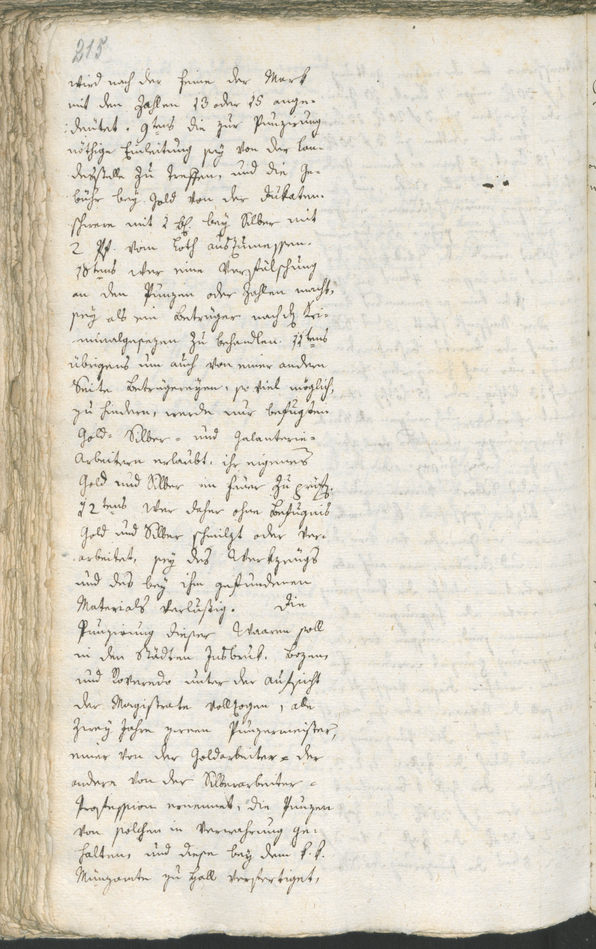 215
wird nach der feine der Mark
mit den Zahlen 13 oder 15 ange-
deutet. 9tens die zur Punzirung
nöthige Einleitung sey von der Lan-
desstelle zu treffen, und die Ge-
bühr bey Gold von der Dukaten-
schwere mit 2 bey Silber mit
2 Pf. vom Loth auszumessen.
10tens wer eine Verfälschung
an den Punzen oder Zahlen macht,
sey als ein Betrüger nach den Kri-
minalgesezen zu behandlen. 11tens
übrigens um auch von einer andern
Seite Betrügereyen, so viel möglich,
zu hindern, werde nur befugten
Gold- Silber- und Galanterie-
Arbeitern erlaubt, ihr eigenes
Gold und Silber im feuer zu
12tens Wer daher ohne Befugnis
Gold und Silber schmilzt oder ver-
arbeitet, sey des Werkzeugs
und des bey ihm gefundenen
Materials verlustig. Die
Punzirung dieser Waaren soll
in den Städten Insbruk, Bozen,
und Roveredo unter der Aufsicht
der Magistrate vollzogen, alle
zwey Jahre zween Punzenmeister,
einer von der Goldarbeiter- der
andere von der Silberarbeiter-
Profession ernennet, die Punzen
von solchen in Verwahrung ge-
halten, und diese bey dem k. k.
Münzamte zu Hall verfertiget,